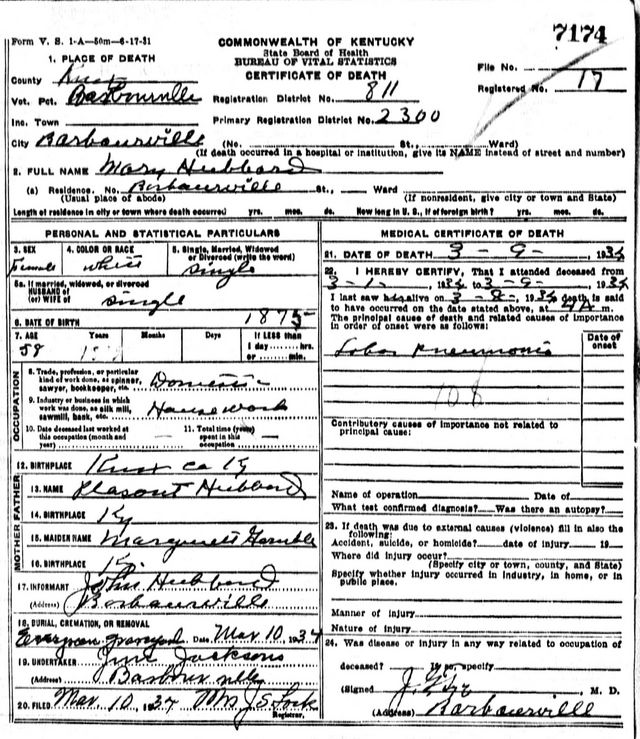 7174
Form V. S. 1-A—50m—6-17-31
COMMONWEALTH OF KENTUCKY
State Board of Health
BUREAU OF VITAL STATISTICS
CERTIFICATE OF DEATH
1. PLACE OF DEATH
File No.
County Knox
Registered No. 17
Vot. Pct. Barbourville Registration District No. 811
Inc. Town Primary Registration District No. 2300
City Barbourville (No. St., Ward)
(If death occurred in a hospital or institution, give its NAME instead of street and number)
2. FULL NAME Mary Hubbard
(a) Residence. No. Barbourville St., Ward
(Usual place of abode) (If nonresident, give city or town and State)
Length of residence in city or town where death occurred yrs. mos. ds. How long in U. S., if of foreign birth? yrs. mos. ds.
PERSONAL AND STATISTICAL PARTICULARS
3. SEX 4. COLOR OR RACE 5. Single, Married, Widowed
or Divorced (write the word)
Female white single
5a. If married, widowed, or divorced
HUSBAND OF
(or) WIFE OF single
6. DATE OF BIRTH 1875
7. AGE Years Months Days If LESS than
1 day hrs.
or min.
8. Trade, profession, or particular
kind of work done, as spinner,
sawyer, bookkeeper, etc. Domestic
9. Industry or business in which
work was done, as silk mill,
sawmill, bank, etc. Housework
10. Date deceased last worked at
this occupation (month and
year)
11. Total time (years)
spent in this
occupation
OCCUPATION
12. BIRTHPLACE Knox Co Ky
FATHER
13. NAME Hubbard
14. BIRTHPLACE Ky
MOTHER
15. MAIDEN NAME
16. BIRTHPLACE Ky
17. INFORMANT John Hubbard
(Address) Barbourville
18. BURIAL, CREMATION, OR REMOVAL
Date Mar 10, 1934
19. UNDERTAKER Jim Jacksons
(Address) Barbourville
20. FILED Mar 10, 1934 Mrs J S Lock
Registrar.
MEDICAL CERTIFICATE OF DEATH
21. DATE OF DEATH 3-9-, 1934
22. I HEREBY CERTIFY, That I attended deceased from
3-1-, 1934 to 3-9-, 1934
I last saw h alive on 3-8-, 1934 death is said
to have occurred on the date stated above, at m.
The principal cause of death and related causes of importance
in order of onset were as follows:
Date of
onset
Lobar Pneumonia
108
Contributory causes of importance not related to
principal cause:
Name of operation Date of
What test confirmed diagnosis? Was there an autopsy?
23. If death was due to external causes (violence) fill in also the
following:
Accident, suicide, or homicide? date of injury 19
Where did injury occur?
(Specify city or town, county, and State)
Specify whether injury occurred in industry, in home, or in
public place.
Manner of injury
Nature of injury
24. Was disease or injury in any way related to occupation of
deceased? If so, specify
(Signed) M. D.
(Address) Barbourville